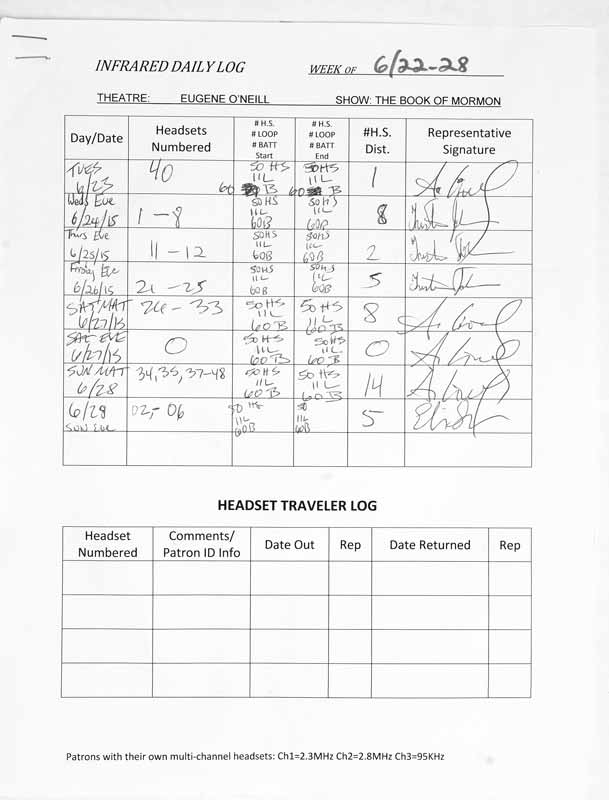 INFRARED DAILY LOG WEEK OF 6/22-28
THEATRE: EUGENE O'NEILL SHOW: THE BOOK OF MORMON
Day/Date Headsets Numbered # H.S. # LOOP # BATT Start # H.S. # LOOP # BATT End #H.S. Dist. Representative Signature
TUES 6/23 40 50 HS 11L 60 B 50HS 11L 60 B 1
Weds Eve 6/24/15 1-8 50HS 11L 60B 50HS 11L 60B 8
Thurs Eve 6/25/15 11-12 50HS 11L 60B 50HS 11L 60B 2
Friday Eve 6/26/15 21-25 50HS 11L 60B 50HS 11L 60B 5
SAT MAT 6/27/15 26-33 50HS 11L 60B 50HS 11L 60B 8
SAT EVE 6/27/15 0 50HS 11L 60B 50HS 11L 60B 0
SUN MAT 6/28 34, 35, 37-48 50HS 11L 60B 50HS 11L 60B 14
6/28 SUN EVE 02-06 50 HS 11L 60B 50 11L 60B 5
HEADSET TRAVELER LOG
Headset Numbered Comments/ Patron ID Info Date Out Rep Date Returned Rep
Patrons with their own multi-channel headsets: Ch1=2.3MHz Ch2=2.8MHz Ch3=95KHz